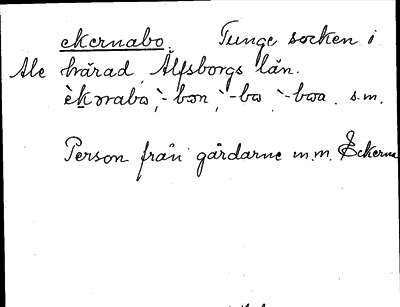 ekernabo. Tunge socken i
Ale härad Älfsborgs län.
èkərabω, `-bωn, `-bω `-bωa. s.m.
Person från gårdarne m.m. Eckerna